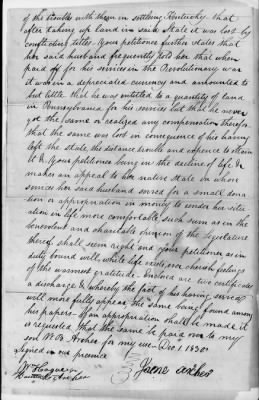 of the troubles with them in settling Kentucky that
after taking up land in said State it was lost by
conflicting titles. Your petitioner further states that
her said husband frequently told her that when
paid off for his services in the Revolutionary war
it was in a depreciated currency and amounted to
but little that he was entitled to a quantity of land
in Pennsylvania for his services but that he never
got the same or realized any compensation therefor
that the same was lost in consequence of his having
left the state, the distance trouble and expence to attain
it & Your petitioner being in the decline of life &
makes an appeal to her native State in whose
service her said husband served for a small dona-
tion or appropriation in money to render her situ-
ation in life more comfortable such sum as in the
benevolent and charitable opinion of the Legislature
thereof shall seem right and your petitioner as in
duty bound will while life exists ever cherish feelings
of the warmest gratitude. Enclosed are two certificates
a discharge & whereby the fact of his having served
will more fully appear the same being found among
his papers. If an appropriation shall be made it
is requested that the same be paid over to my
son W. B. Archer for my use. Dec 1 1830
Signed in our presence
Jane Archer